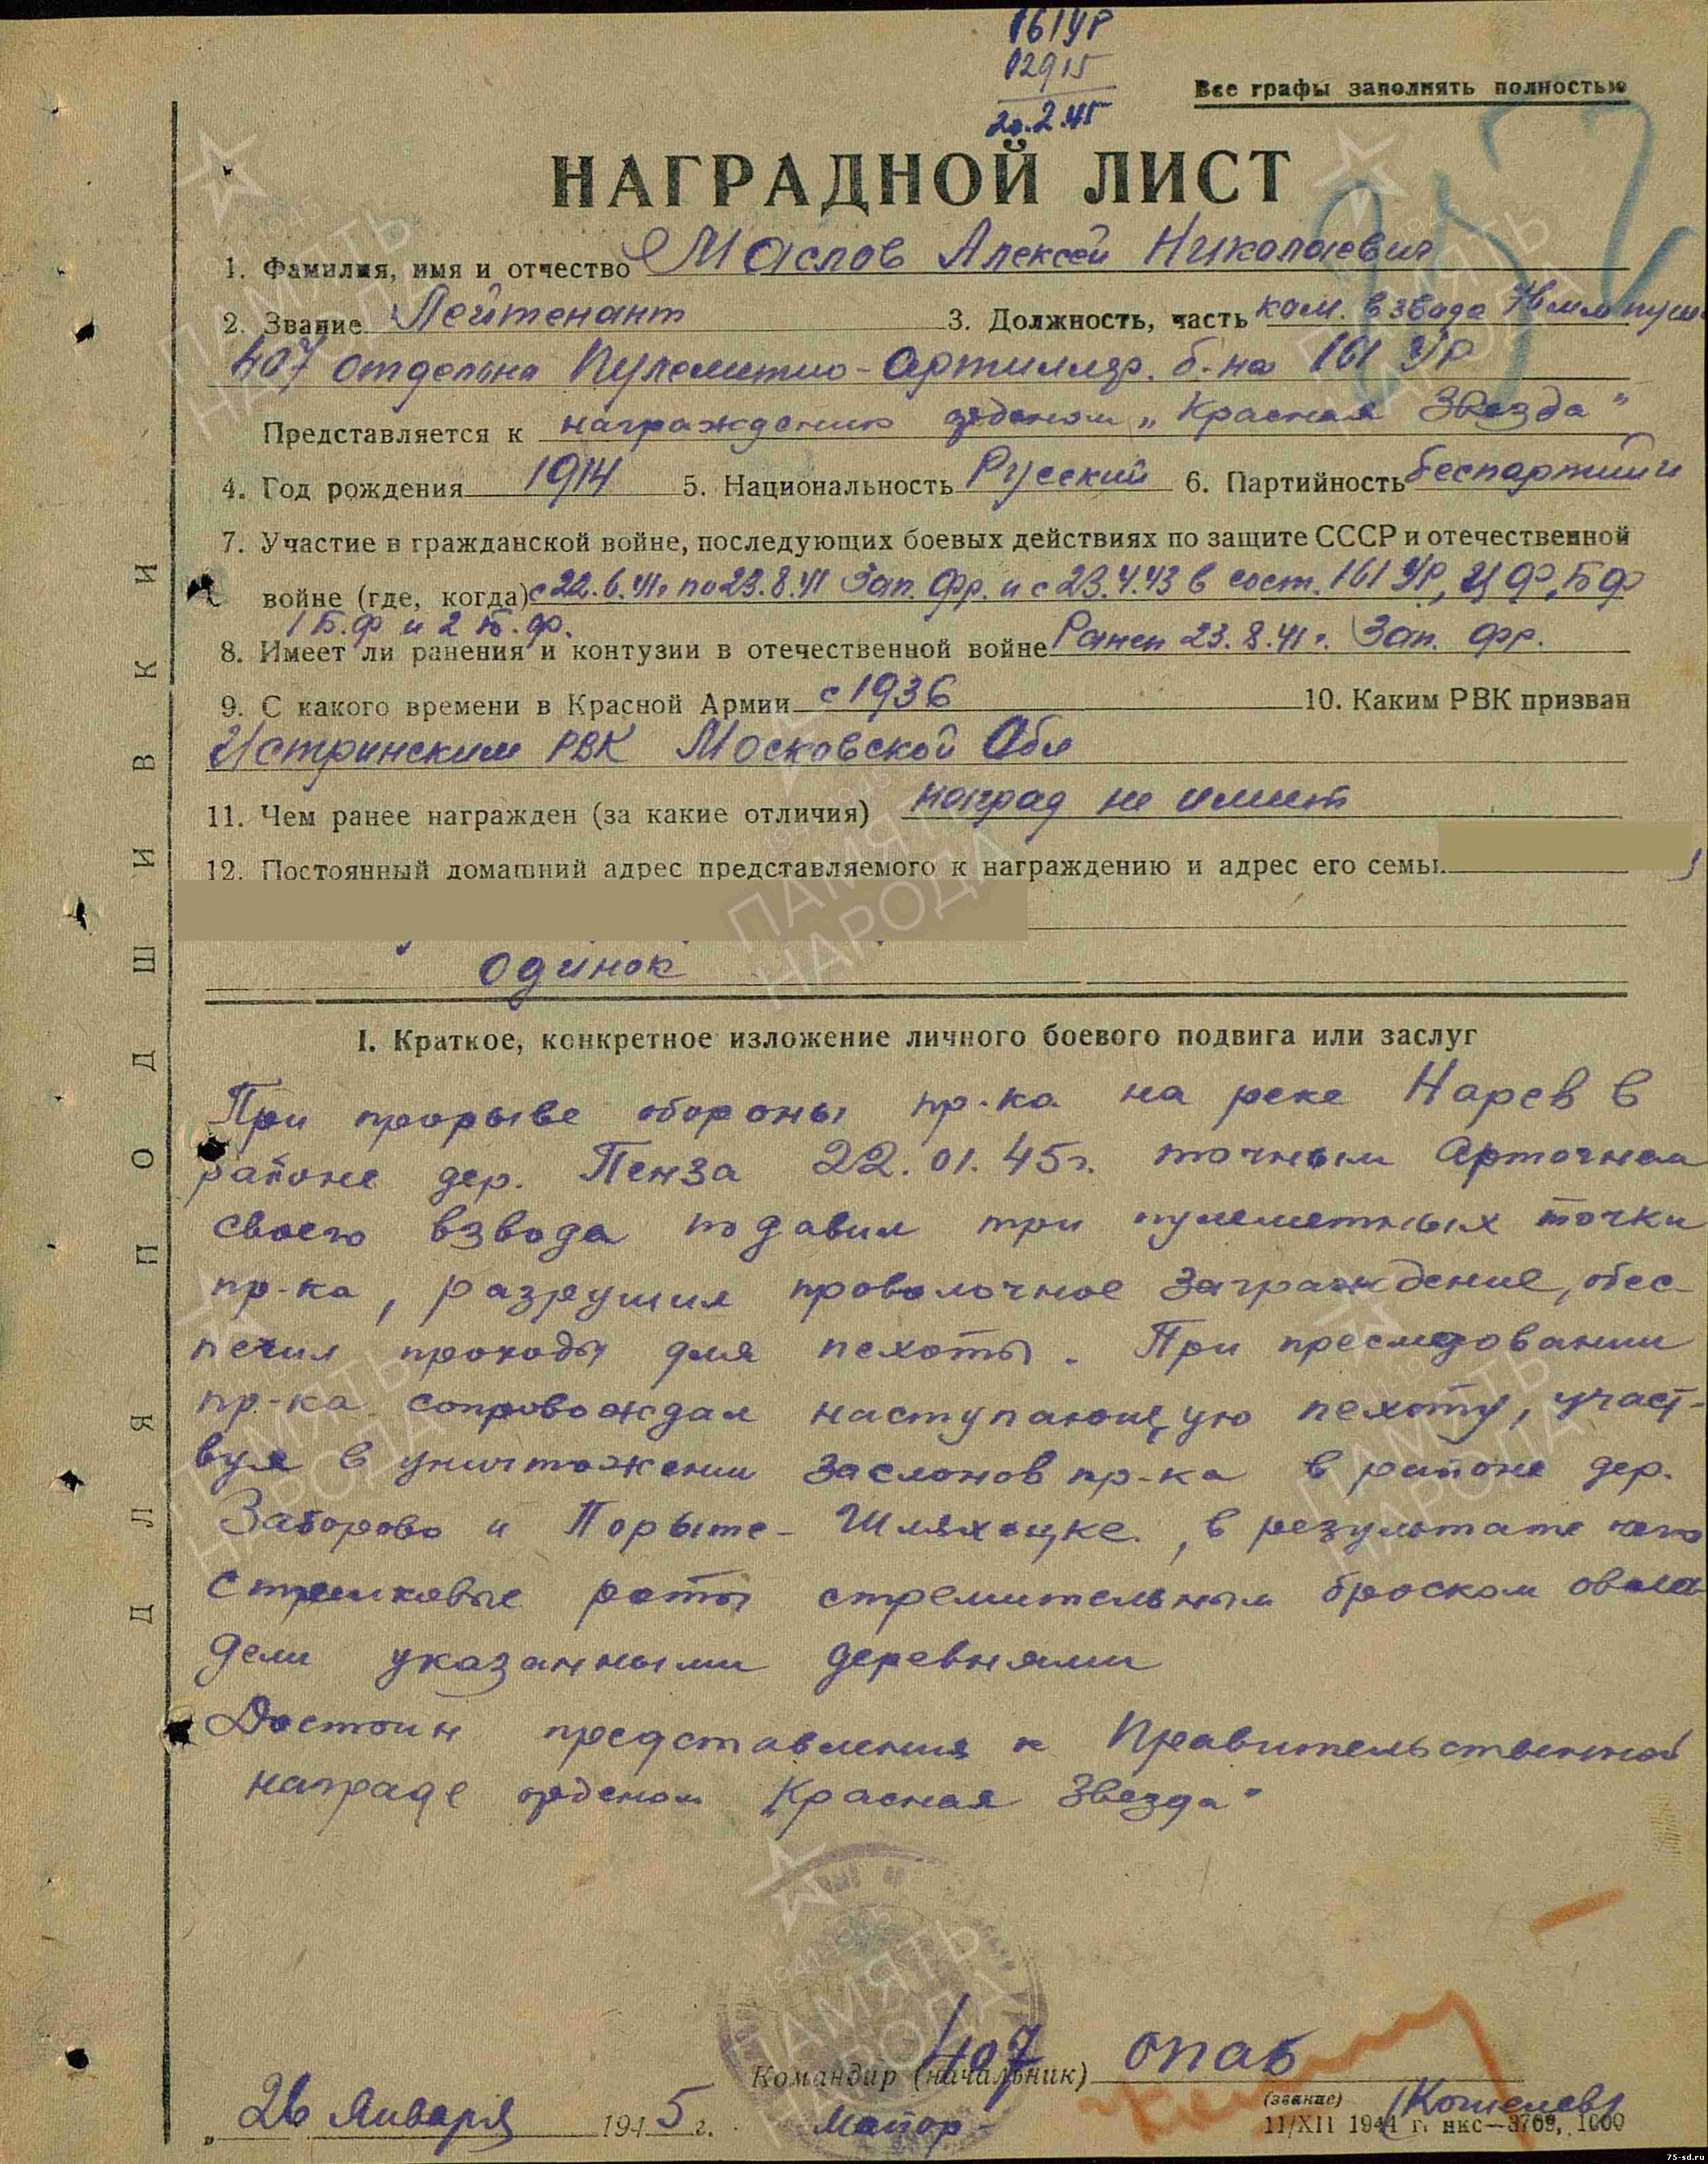 161 УР
02915
20.2.45
Все графы заполнять полностью
НАГРАДНОЙ ЛИСТ
1. Фамилия, имя и отчество Маслов Алексей Николаевич
2. Звание Лейтенант 3. Должность, часть ком. взвода пуш.
407 отдельн. Пулеметно-Артилляр. б-на 161 УР
Представляется к награждению орденом „Красная Звезда"
4. Год рождения 1914 5. Национальность Русский 6. Партийность беспартийн
7. Участие в гражданской войне, последующих боевых действиях по защите СССР и отечественной
войне (где, когда) с 22.6.41г по 23.8.41 Зап. фр. и с 23.4.43 в сост. 161 УР, ЦФ, БФ
1 Б.Ф и 2 Б.Ф.
8. Имеет ли ранения и контузии в отечественной войне Ранен 23.8.41г. Зап. фр.
9. С какого времени в Красной Армии с 1936 10. Каким РВК призван
Истринским РВК Московской Обл
11. Чем ранее награжден (за какие отличия) наград не имеет
12. Постоянный домашний адрес представляемого к награждению и адрес его семьи
одинок
I. Краткое, конкретное изложение личного боевого подвига или заслуг
При прорыве обороны пр-ка на реке Нарев в
районе дер. Пенза 22.01.45г. точным Артогнем
своего взвода подавил три пулеметных точки
пр-ка, разрушил проволочное заграждение, обес-
печил проходы для пехоты. При преследовании
пр-ка сопровождал наступающую пехоту, участ-
вуя в уничтожении заслонов пр-ка в районе дер.
Заборово и Порыте-Шляхецке, в результате чего
стрелковые роты стремительным броском овла
дели указанными деревнями
Достоин представления к Правительственной
награде орденом „Красная Звезда"
407 ОПАБ
Командир (начальник)
(звание)
26 Января 1945 г. Майор - Кошелев
11/XII 1944 г. нкс—3769, 1000
ДЛЯ ПОДШИВКИ
ПАМЯТЬ НАРОДА
1941-1945
75-sd.ru